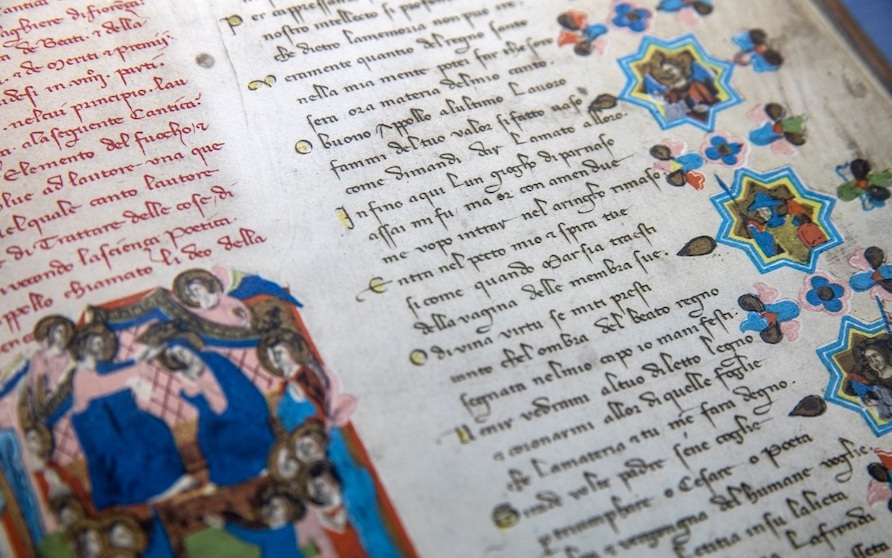 di fiorença.
de Beati. & dela
& de Meriti & premij.
desi in viiij. parti
. nelcui principio. lau
. ala seguente Cantica.
Elemento del fuocho; &
ad lautore vna que
del quale canto lautore
e di Trattare delle cose di
uocando la sciença Poetica.
ppollo chiamato deo della
Per appressa
nostro intellecto si profon
che dietro lamemoria non puo ire.
Veramente quanto del regno santo
nella mia mente potei far thesoro
sera ora materia delmio canto.
O buono appollo alultimo Lauoro
fammi del tuo valor si fatto uaso
come dimandi dar Lamato alloro.
Infino aqui Lun giogho di parnaso
assai mi fu. ma or con amendue
me vopo intrar nel aringho rimaso
Entra nel petto mio & spira tue
si come quando Marsia traesti
della vagina delle membra sue.
O diuina virtu se mi ti presti
tanto chel ombra del beato regno
segnata nelmio capo io manifesti.
Venir vedrami altuo diletto Legno
& coronarmi allor di quelle foglie
che Lamateria & tu me farai degno.
Si rade volte padre sene coglie
per triumphare o Cesare o poeta
colpa & vergongna del humane voglie.
insu Lalieta
Lafronda